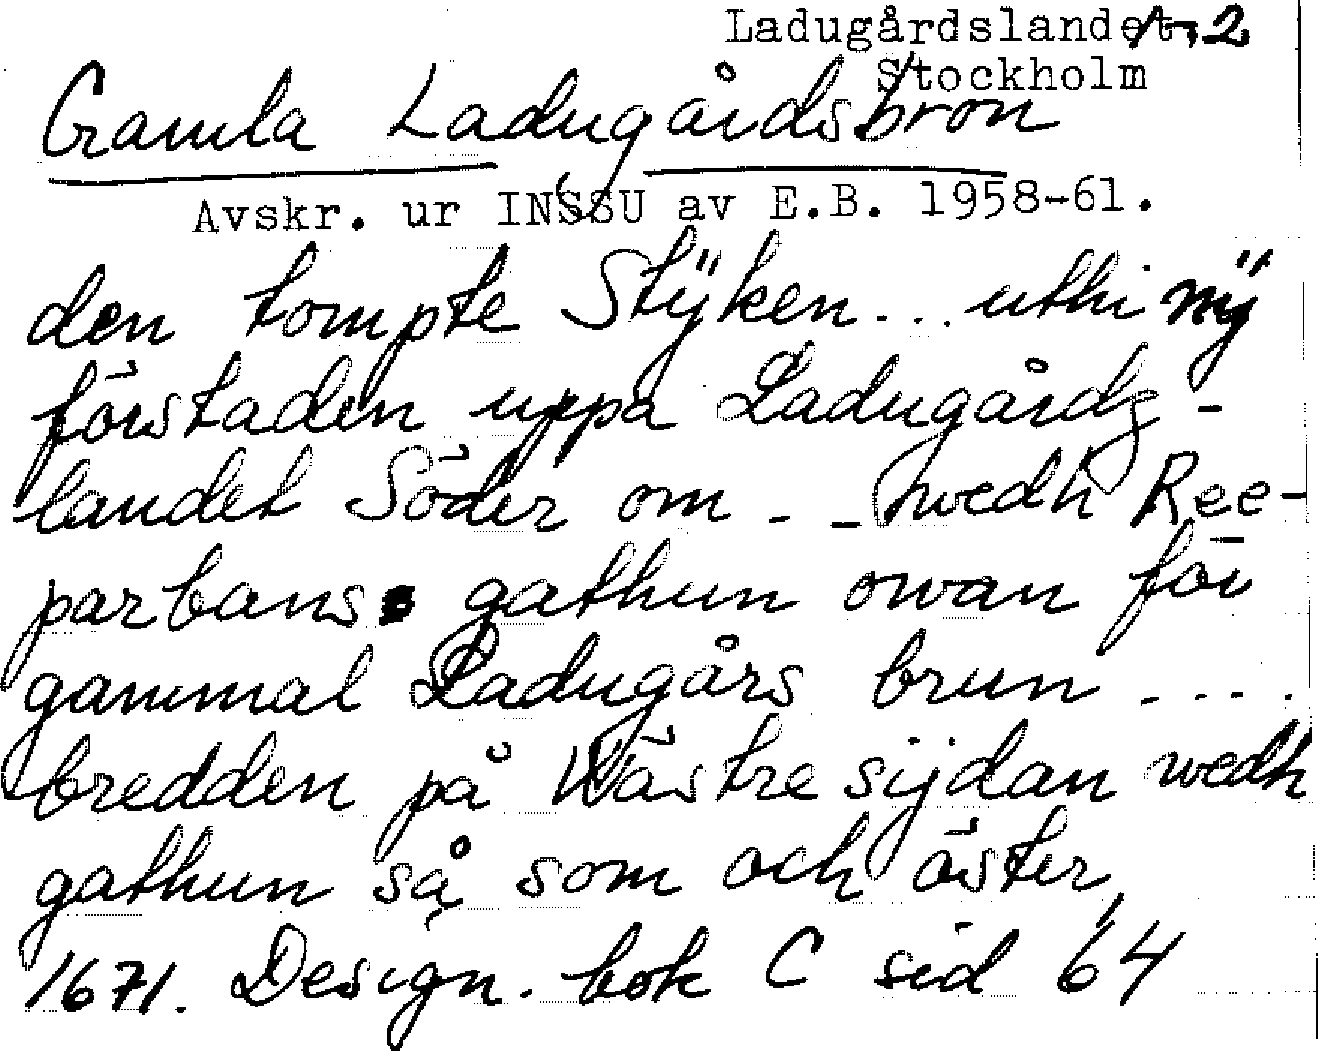 Ladugårdslandet, 2
Stockholm
Gamla Ladugårdsbron
Avskr. ur INSSU av E.B. 1958-61.
den tompte Stÿken... uthi nÿ
förstaden uppå Ladugårdz-
landet Söder om - - hwedh Ree-
parbans gathun owan för
gammal Ladugårs brun ....
bredden på Wästre sijdan wedh
gathun så som och öster,
1671. Design. bok C sid 64